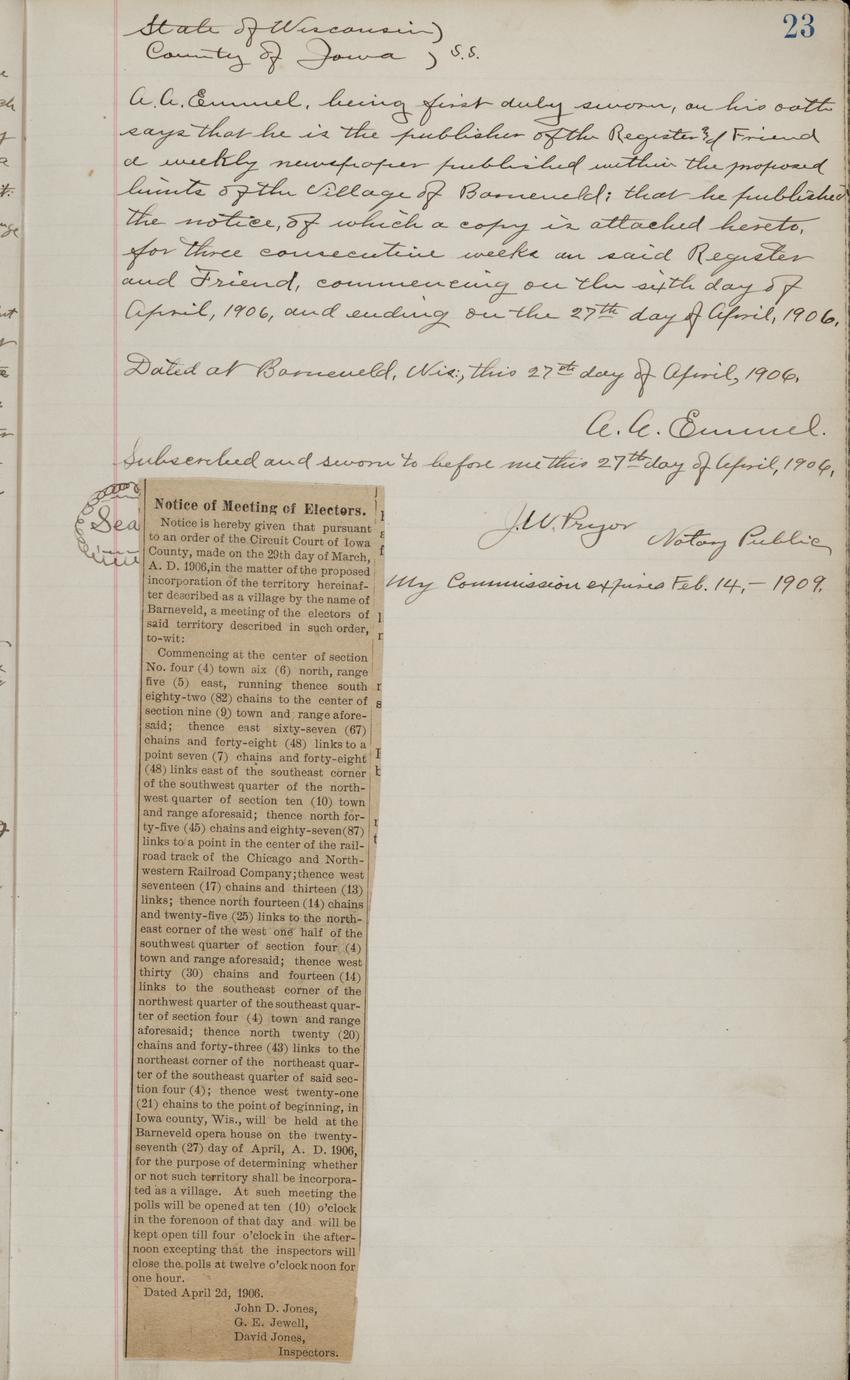 23
State of Wisconsin)
County of Iowa ) S.S.
A. A. Emmel, being first duly sworn, on his oath
says that he is the publisher of the Register & Friend
a weekly newspaper published within the proposed
limits of the Village of Barneveld; that he published
the notice, of which a copy is attached hereto,
for three consecutive weeks in said Register
and Friend, commencing on the sixth day of
April, 1906, and ending on the 27th day of April, 1906.
Dated at Barneveld, Wis., this 27th day of April, 1906.
A. A. Emmel.
Subscribed and sworn to before me this 27th day of April, 1906.
Sea
J. W. Pryor
Notary Public
My Commission expires Feb. 14, – 1909.
Notice of Meeting of Electors.
Notice is hereby given that pursuant
to an order of the Circuit Court of Iowa
County, made on the 29th day of March,
A. D. 1906,in the matter of the proposed
incorporation of the territory hereinaf-
ter described as a village by the name of
Barneveld, a meeting of the electors of
said territory described in such order,
to-wit:
Commencing at the center of section
No. four (4) town six (6) north, range
five (5) east, running thence south
eighty-two (82) chains to the center of
section nine (9) town and range afore-
said; thence east sixty-seven (67)
chains and forty-eight (48) links to a
point seven (7) chains and forty-eight
(48) links east of the southeast corner
of the southwest quarter of the north-
west quarter of section ten (10) town
and range aforesaid; thence north for-
ty-five (45) chains and eighty-seven(87)
links to a point in the center of the rail-
road track of the Chicago and North-
western Railroad Company;thence west
seventeen (17) chains and thirteen (13)
links; thence north fourteen (14) chains
and twenty-five (25) links to the north-
east corner of the west one half of the
southwest quarter of section four (4)
town and range aforesaid; thence west
thirty (30) chains and fourteen (14)
links to the southeast corner of the
northwest quarter of the southeast quar-
ter of section four (4) town and range
aforesaid; thence north twenty (20)
chains and forty-three (43) links to the
northeast corner of the northeast quar-
ter of the southeast quarter of said sec-
tion four (4); thence west twenty-one
(21) chains to the point of beginning, in
Iowa county, Wis., will be held at the
Barneveld opera house on the twenty-
seventh (27) day of April, A. D. 1906,
for the purpose of determining whether
or not such territory shall be incorpora-
ted as a village. At such meeting the
polls will be opened at ten (10) o'clock
in the forenoon of that day and will be
kept open till four o'clock in the after-
noon excepting that the inspectors will
close the polls at twelve o'clock noon for
one hour.
Dated April 2d, 1906.
John D. Jones,
G. E. Jewell,
David Jones,
Inspectors.